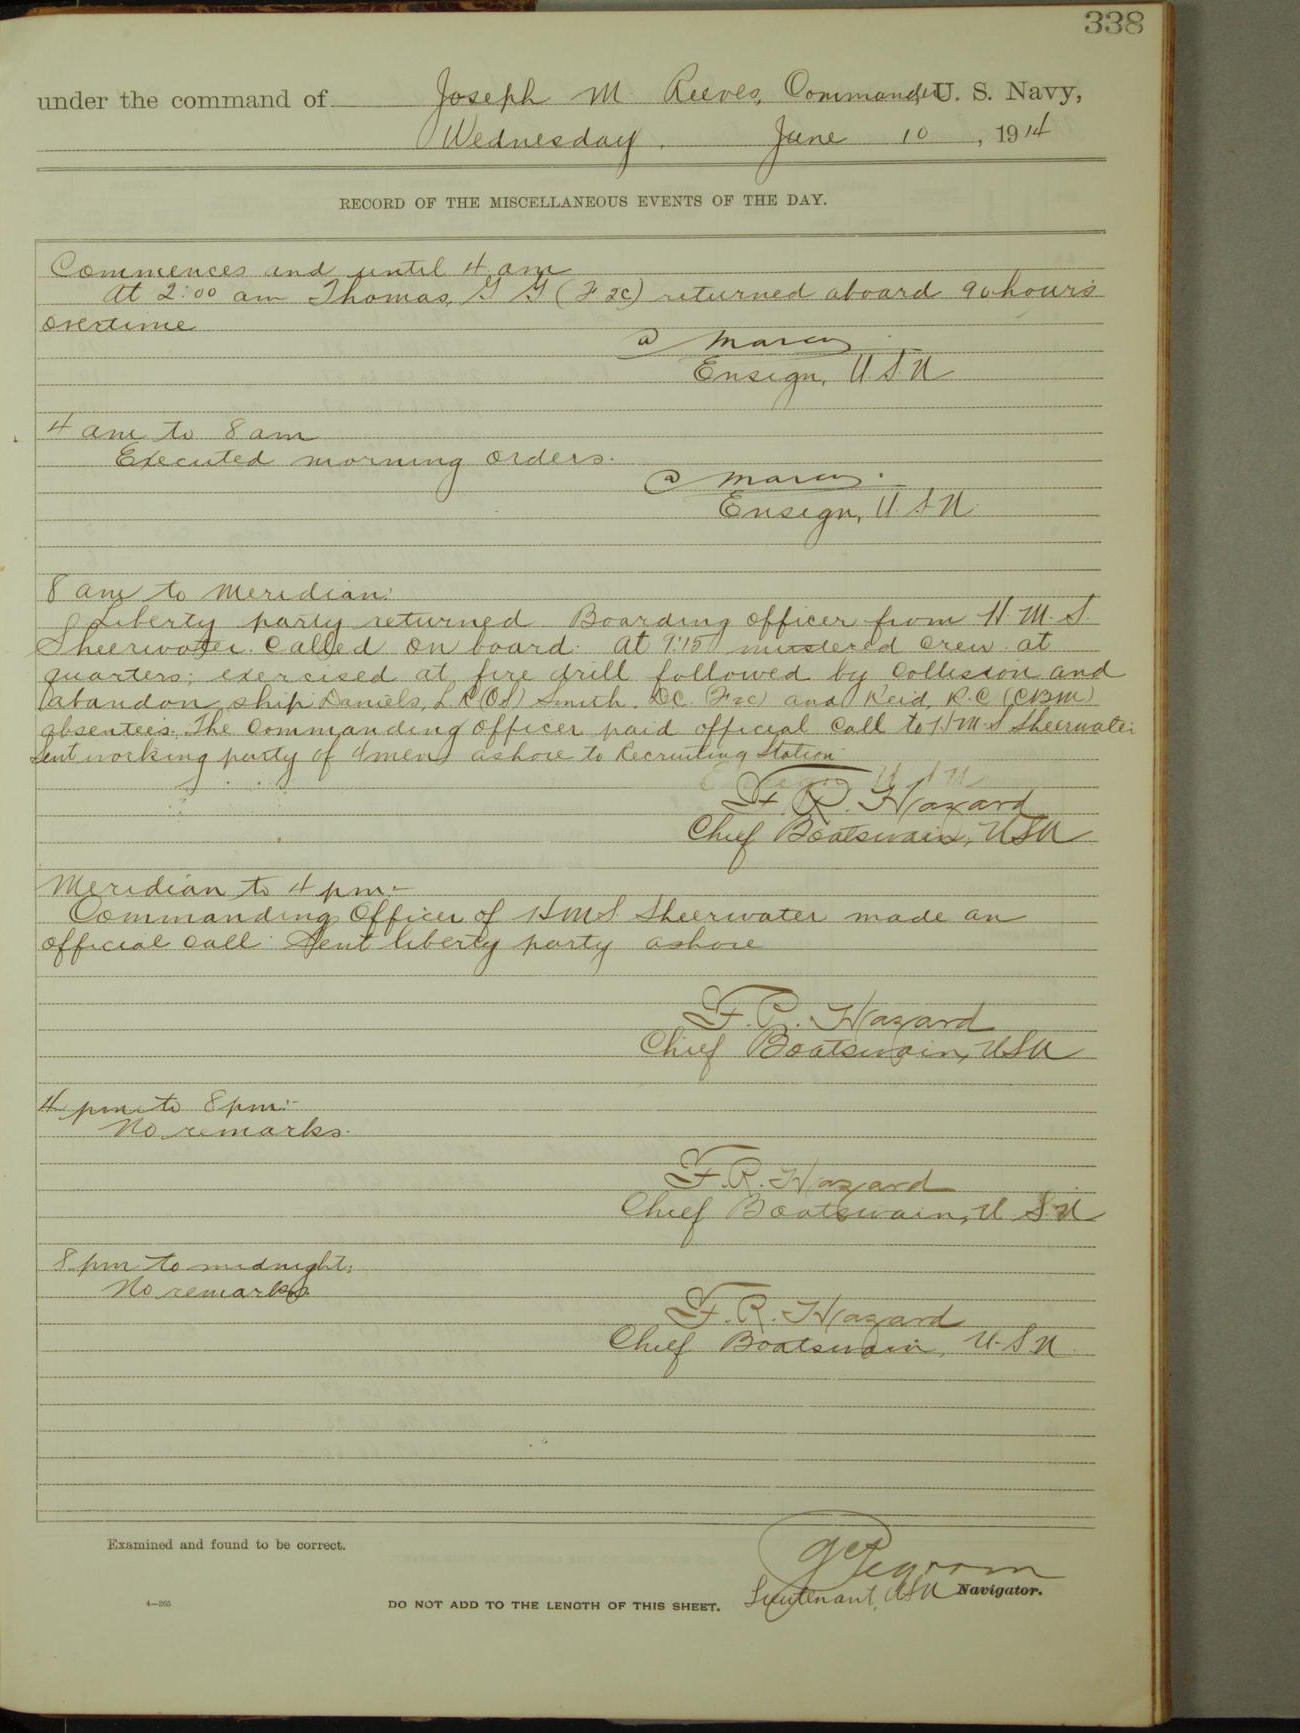 338
under the command of Joseph M. Reeves, Commander U. S. Navy,
Wednesday, June 10, 1914
RECORD OF THE MISCELLANEOUS EVENTS OF THE DAY.
Commences and until 4 am
At 2:00 am Thomas, G G (F 2c) returned aboard 90 hours
overtime
Ensign, U.S.N
4 am to 8 am
Executed morning orders.
Ensign, U.S.N.
8 am to Meridian:
Liberty party returned Boarding officer from H.M.S.
Sheerwater called on board. At 9:15 mustered crew at
quarters; exercised at fire drill followed by collision and
abandon ship Daniels, L R (OS) Smith, D.C. (F2c) and Reid, R.C (CBM)
absentees. The Commanding Officer paid official call to H.M.S Sheerwater
Sent working party of 4 men ashore to Recruiting Station
F. R. Hazard
Chief Boatswain, USN
Meridian to 4 pm:-
Commanding Officer of HMS Sheerwater made an
official call Sent liberty party ashore
F. R. Hazard
Chief Boatswain, USN
4 pm to 8 pm:-
No remarks.
F. R. Hazard
Chief Boatswain, U.S.N
8 pm to midnight:
No remarks
F. R. Hazard
Chief Boatswain, U.S.N
Examined and found to be correct.
Lieutenant, USN Navigator.
4—265
DO NOT ADD TO THE LENGTH OF THIS SHEET.